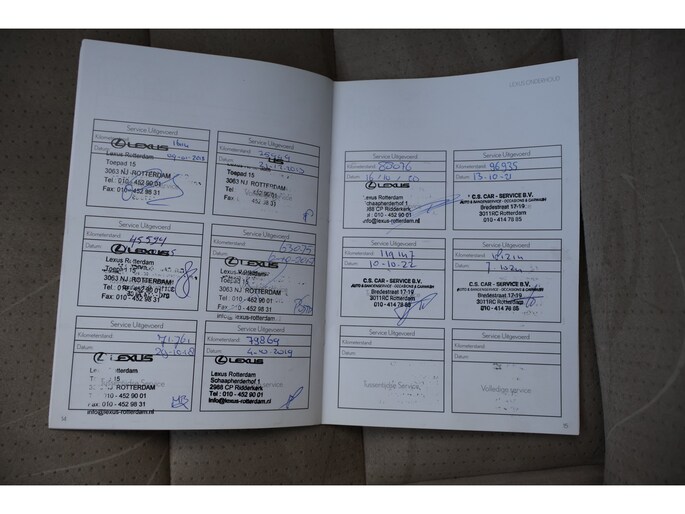 LEXUS ONDERHOUD
Service Uitgevoerd
Kilometerstand:
Datum:
LEXUS
Lexus Rotterdam
Toepad 15
3063 NJ ROTTERDAM
Tel : 010 - 452 90 01
Fax: 010 - 452 98 31
Service Uitgevoerd
Kilometerstand:
Datum:
Toepad 15
3063 NJ ROTTERDAM
Tel
452 90 01
Fax
452 98 31
Service Uitgevoerd
Kilometerstand: 45594
Datum:
LEXUS
Lexus Rotterdam
Toepad 15
3063 NJ ROTTERDAM
Tel : 010 - 452 90 01
Fax : 010 - 452 98 31
Service Uitgevoerd
Kilometerstand:
Datum:
LEXUS
Lexus Rotterdam
Toepad 15
3063 NJ ROTTERDAM
Tel : 010 - 452 90 01
Fax : 010 - 452 98 31
info@lexus-rotterdam.nl
Service Uitgevoerd
Kilometerstand:
Datum:
LEXUS
Lexus Rotterdam
15
ROTTERDAM
010 - 452 90 01
Fax: 010 - 452 98 31
info@lexus-rotterdam.nl
Service Uitgevoerd
Kilometerstand: 79869
Datum: 4-10-2019
LEXUS
Lexus Rotterdam
Schaapherderhof 1
2988 CP Ridderkerk
Tel : 010 - 452 90 01
info@lexus-rotterdam.nl
14
Service Uitgevoerd
Kilometerstand: 88076
Datum: 16/10/20
LEXUS
Lexus Rotterdam
Schaapherderhof 1
2988 CP Ridderkerk
Tel : 010 - 452 90 01
info@lexus-rotterdam.nl
Service Uitgevoerd
Kilometerstand: 96935
Datum: 13-10-21
C.S. CAR - SERVICE B.V.
Bredestraat 17-19
3011RC Rotterdam
010 - 414 78 85
Service Uitgevoerd
Kilometerstand: 111147
Datum: 10-10-22
C.S. CAR - SERVICE B.V.
Bredestraat 17-19
3011RC Rotterdam
010 - 414 78 85
Service Uitgevoerd
Kilometerstand:
Datum:
C.S. CAR - SERVICE B.V.
Bredestraat 17-19
3011RC Rotterdam
010 - 414 78 85
Service Uitgevoerd
Kilometerstand:
Datum:
Tussentijdse Service
Service Uitgevoerd
Kilometerstand:
Datum:
Volledige service
15